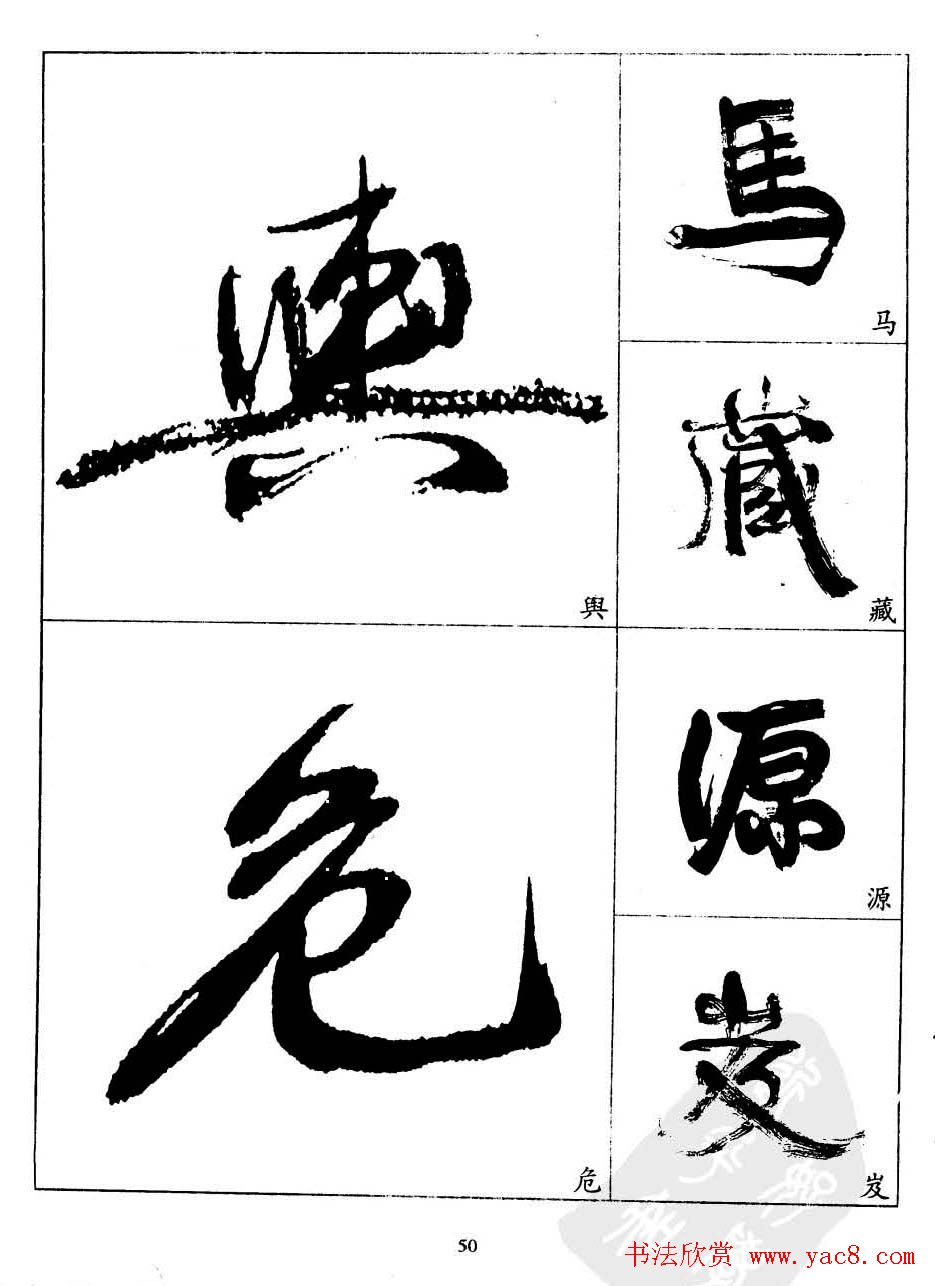 舆
舆
危
危
馬
马
藏
藏
源
源
岌
岌
50
书法欣赏 www.yac8.com